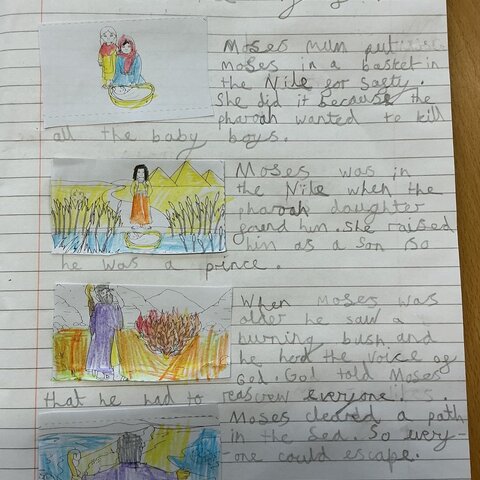 Moses mum put
moses in a basket in
the Nile for safty.
She did it because the
pharoah wanted to kill
all the baby boys.
Moses was in
the Nile when the
pharoah daughter
found him. She raised
him as a son so
he was a prince.
When Moses was
older he saw a
burning bush and
he herd the voice of
God. God told Moses
that he had to reascew everyone.
Moses cleared a path
in the Sea. So every-
-one could escape.